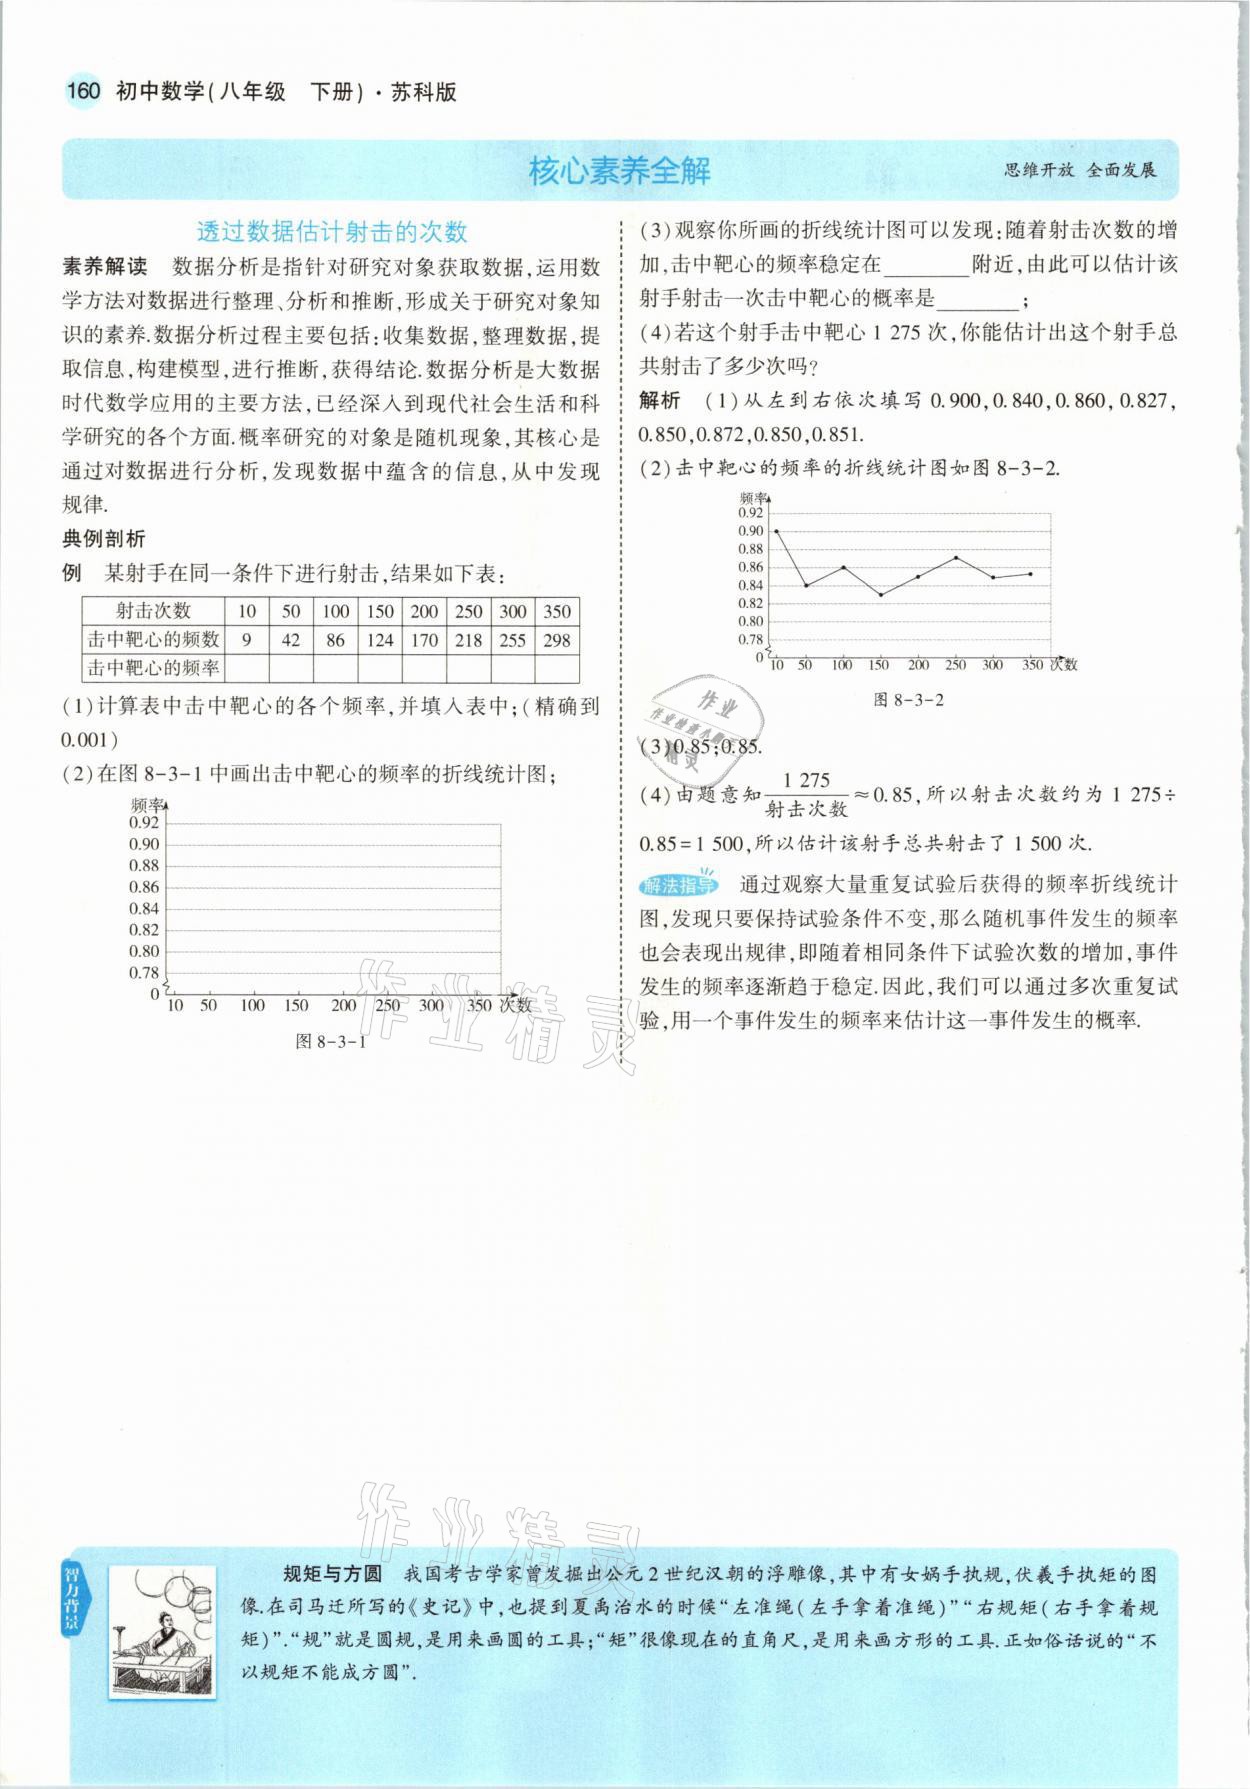 160 初中数学(八年级 下册)·苏科版
核心素养全解
思维开放 全面发展
透过数据估计射击的次数
素养解读 数据分析是指针对研究对象获取数据,运用数
学方法对数据进行整理、分析和推断,形成关于研究对象知
识的素养.数据分析过程主要包括:收集数据,整理数据,提
取信息,构建模型,进行推断,获得结论.数据分析是大数据
时代数学应用的主要方法,已经深入到现代社会生活和科
学研究的各个方面.概率研究的对象是随机现象,其核心是
通过对数据进行分析,发现数据中蕴含的信息,从中发现
规律.
典例剖析
例 某射手在同一条件下进行射击,结果如下表:
射击次数 10 50 100 150 200 250 300 350
击中靶心的频数 9 42 86 124 170 218 255 298
击中靶心的频率
(1)计算表中击中靶心的各个频率,并填入表中;(精确到
0.001)
(2)在图 8-3-1 中画出击中靶心的频率的折线统计图;
频率
0.92
0.90
0.88
0.86
0.84
0.82
0.80
0.78
0
10 50 100 150 200 250 300 350 次数
图 8-3-1
(3)观察你所画的折线统计图可以发现:随着射击次数的增
加,击中靶心的频率稳定在________附近,由此可以估计该
射手射击一次击中靶心的概率是________;
(4)若这个射手击中靶心 1 275 次,你能估计出这个射手总
共射击了多少次吗?
解析 (1)从左到右依次填写 0.900,0.840,0.860,0.827,
0.850,0.872,0.850,0.851.
(2)击中靶心的频率的折线统计图如图 8-3-2.
频率
0.92
0.90
0.88
0.86
0.84
0.82
0.80
0.78
0
10 50 100 150 200 250 300 350 次数
图 8-3-2
(3)0.85;0.85.
(4)由题意知 1 275/射击次数 ≈0.85,所以射击次数约为 1 275÷
0.85=1 500,所以估计该射手总共射击了 1 500 次.
解法指导 通过观察大量重复试验后获得的频率折线统计
图,发现只要保持试验条件不变,那么随机事件发生的频率
也会表现出规律,即随着相同条件下试验次数的增加,事件
发生的频率逐渐趋于稳定.因此,我们可以通过多次重复试
验,用一个事件发生的频率来估计这一事件发生的概率.
作业
作业检查小助手
精灵
作业精灵
作业精灵
智力背景
规矩与方圆 我国考古学家曾发掘出公元 2 世纪汉朝的浮雕像,其中有女娲手执规,伏羲手执矩的图
像.在司马迁所写的《史记》中,也提到夏禹治水的时候“左准绳(左手拿着准绳)”“右规矩(右手拿着规
矩)”.“规”就是圆规,是用来画圆的工具;“矩”很像现在的直角尺,是用来画方形的工具.正如俗话说的“不
以规矩不能成方圆”.